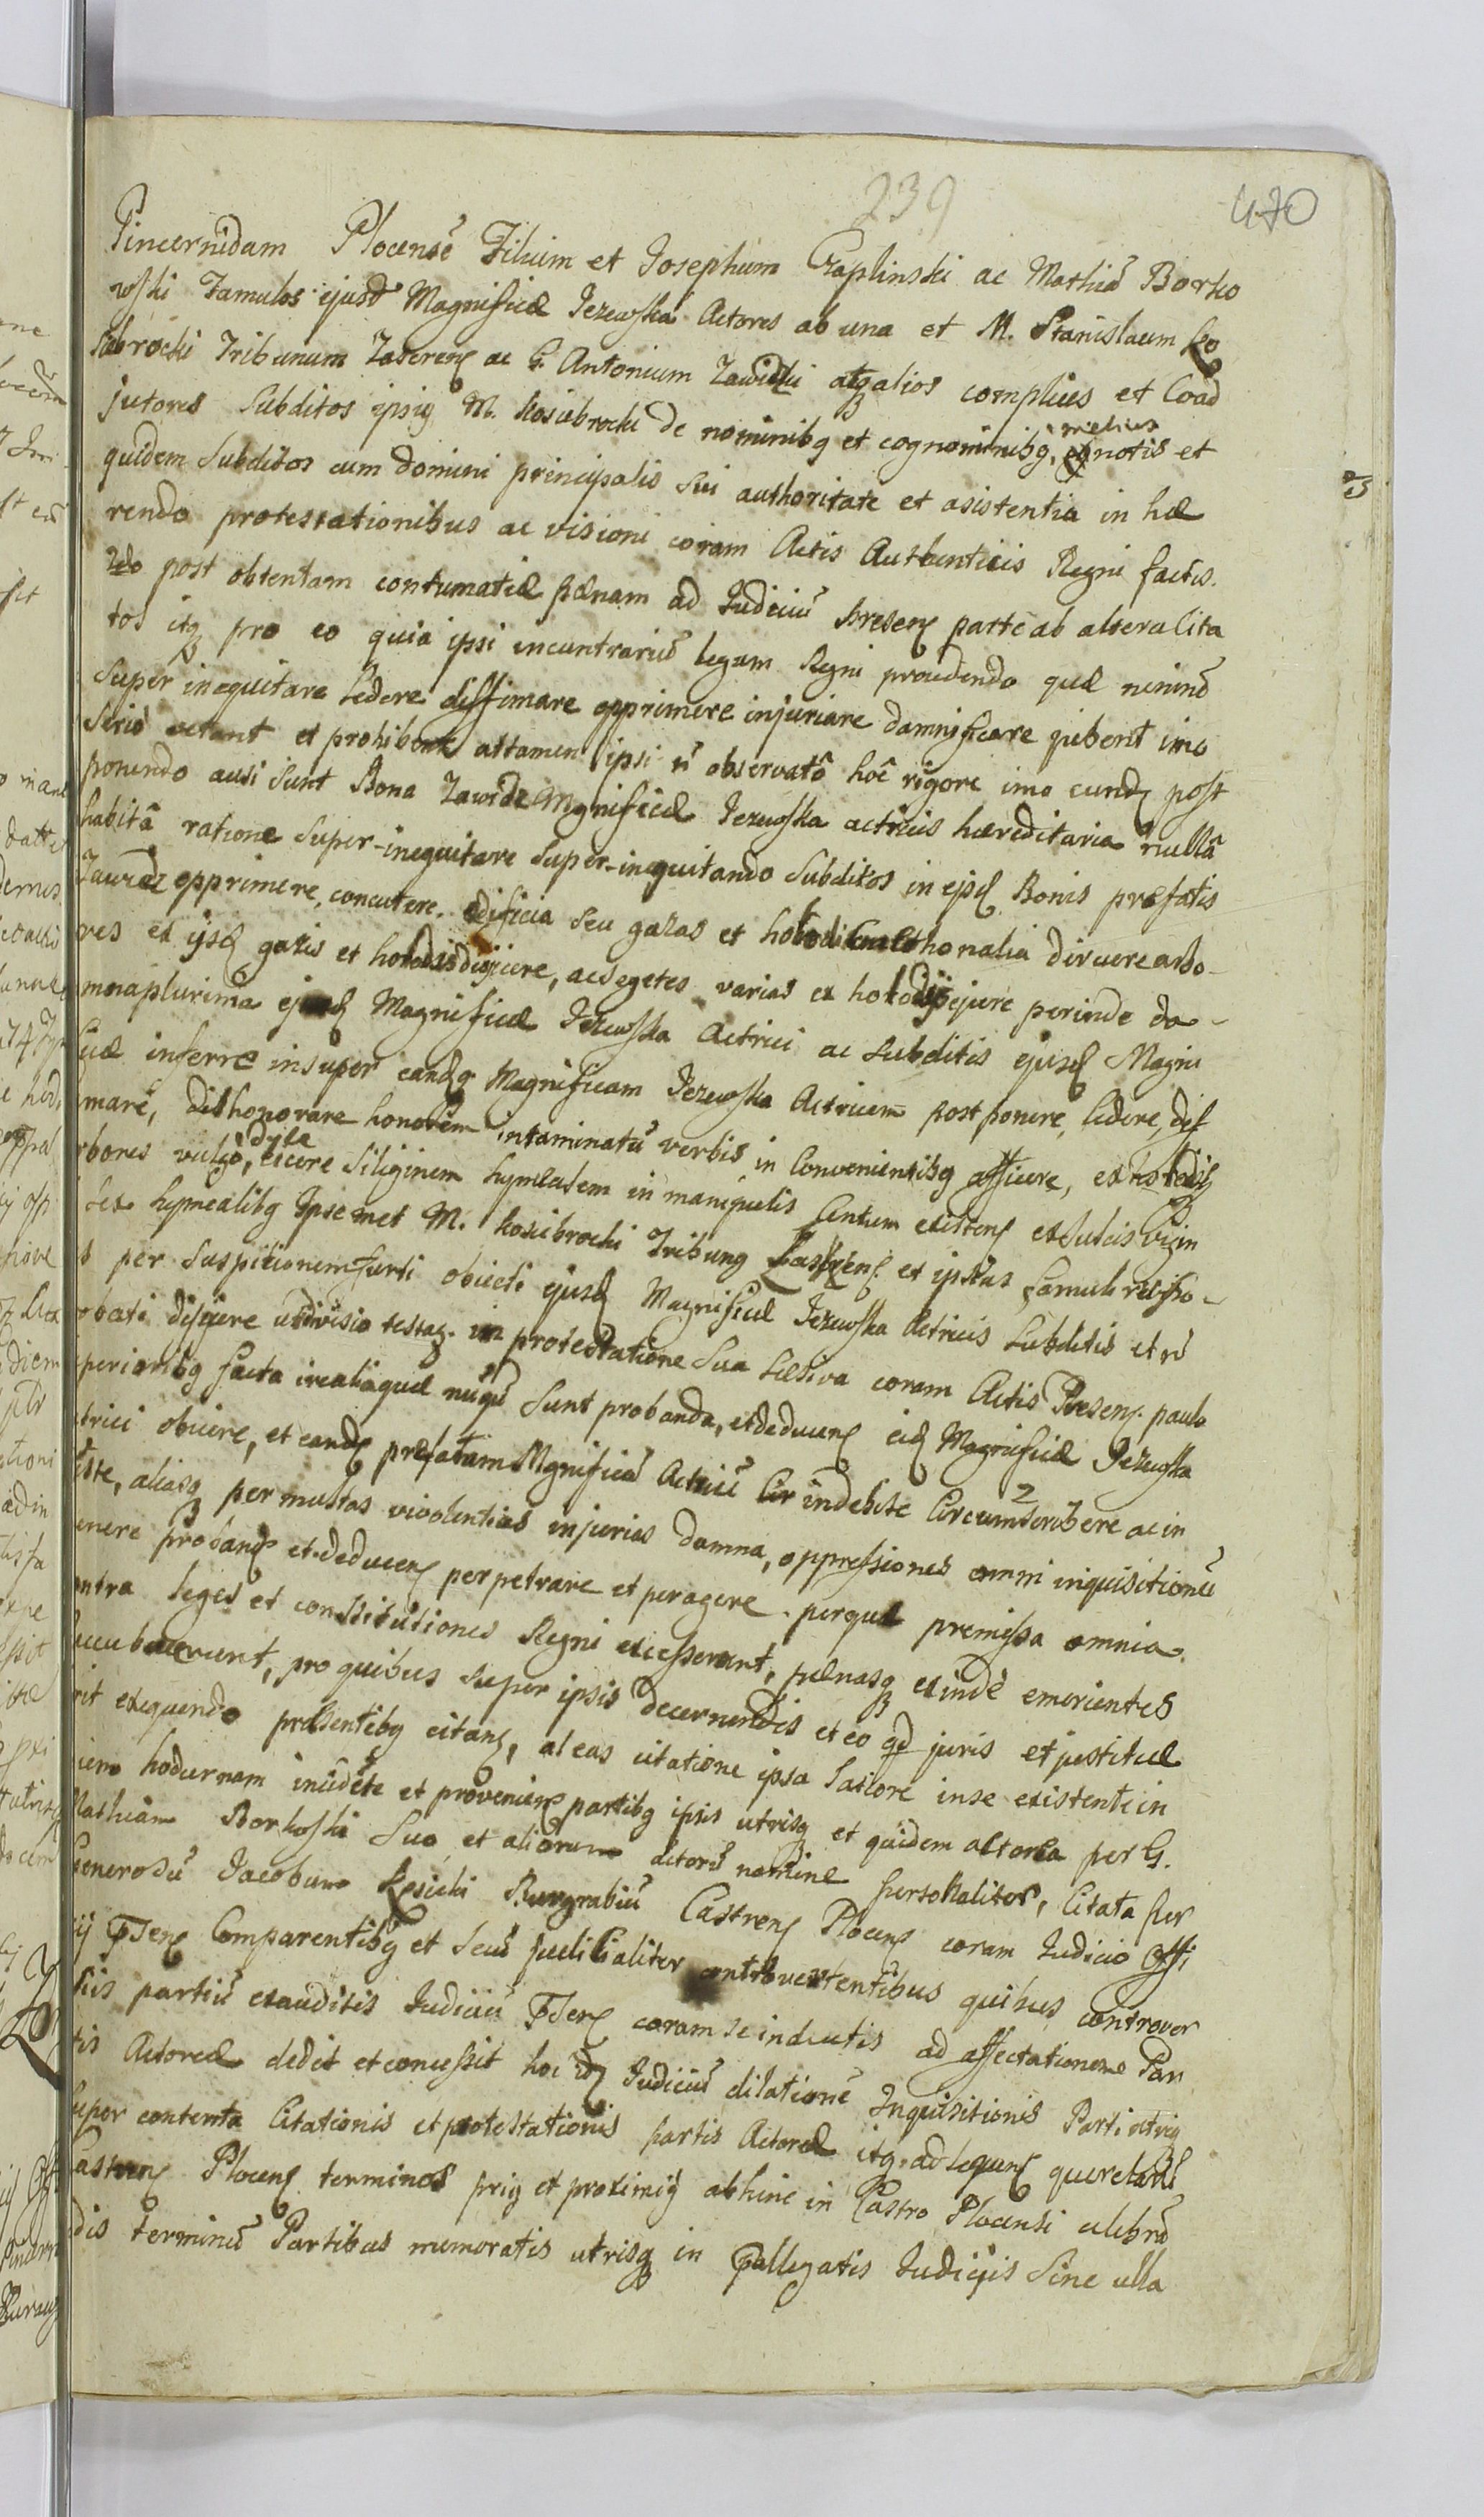 239
470
Pincernidam Plocensẽ Filium et Josephum Czaplinski ac Mathiã Borko
wski Famulos ejusd Magnificæ Jezewska Actores ab una et M. Stanislaum Ko
siabrocki Tribunum Zascrens ac G. Antonium Zawidzki atq alios complices et Coad
jutores Subditos ipsig M. Kosiobrocki de nominibg et cognominibg, melius notis et
quidem Subditos cum domini principalis sui authoritate et asistentia in hæ
rendo protestationibus ac visioni coram Actis Authenticis Regni factis.
2do post obtentam contumatiæ pænam ad Judiciũ Presens partẽ ab altera Cita
tos itq pro eo quia ipsi incontrariũ legum Regni procedendo quæ neminẽ
super inequitare ledere diffimare opprimere injuriare damnificare jubent imo
serio vetant et prohibent attamen ipsi ñ observatô hoc rigore imo eund post
ponendo ausi sunt Bona Zawidz Mgnificæ Jezewska actricis hæreditaria nullâ
habitâ ratione super-inequitare super-inequitando Subditos in ejsd Bonis præfatis
Zawidz opprimere, concutere, ædificia seu gazas et hododi Cmethonalia diruere arbo-
res ex ijsd gazis et hododis dissijcere, ac segetes varias ex hododijs ejicere perinde da-
mna plurima ejusd Magnificæ Jezewska Actrici ac subditis ejusd Magni
ficæ inferre insuper eandq Magnificam Jezewska Actricem postponere, ledere, dif
mare, dishonorare honorem intaminatũ verbis in Convenientibg afficere, ex hododijs
rbores vulgò dyle, eicere Siliginem hymealem in manipulis Centum existens ex sulcis Vigin
sex hymealibg Ipsemet M. Kosiebrocki Tribung Zascrens et ipsius famuli
per suspitionem furti obiecti ejusd Magnificæ Jezewska Actricis subditis et ñ
obati disijcere uti visio testaq in protestatione sua Læsiva coram Actis Presens paulo
perioribg facta irealiaquæ sunt probanda, et deducens eid Magnificæ Jezewska
trici obicere, et eand præfatam Mgnificã Actricẽ Cir indebite Circumscribere ac in
iste, aliasq permultas violentias injurias damna, oppressiones omni inquisitionũ
enere probans et deducens perpetrare et peragere. perquæ premissa omnia
ontra leges et constitutiones Regni excesserunt, pænasq exinde emerientes
uccubuerunt, pro quibus super ipsis decernendis et eo qd juris et justitiæ
rit exequendo presentibg citans, al eas citatione ipsa latiore inse existente in
iem hodiernam incidẽte et proveniens partibg ipsis utrisq et quidem actorea per G.
Mathiam Borkoski suo et aliorum Actorũ nomine personaliter, Citata per
Generosũ Jacobum Kosicki Burgrabiũ Castrens Plocens coram Judicio Offi
ij Psens Comparentibg et seu judicialiter controvertentibus quibus controver
siis partiũ exauditis Judiciũ Psens coram se inductis ad affectationem Par
tis Actoreæ dedit et concessit hoc id Judiciũ dilationẽ Inquisitionis Parti utriq
super contenta Citationis et protestationis partis Actoreæ itq. ad sequens querelarũ
Castrens Plocens terminos prig et proximig abhinc in Castro Plocensi celebrã
dis terminũ Partibus memoratis utrisq in Pallegatis Judicijs sine ulla